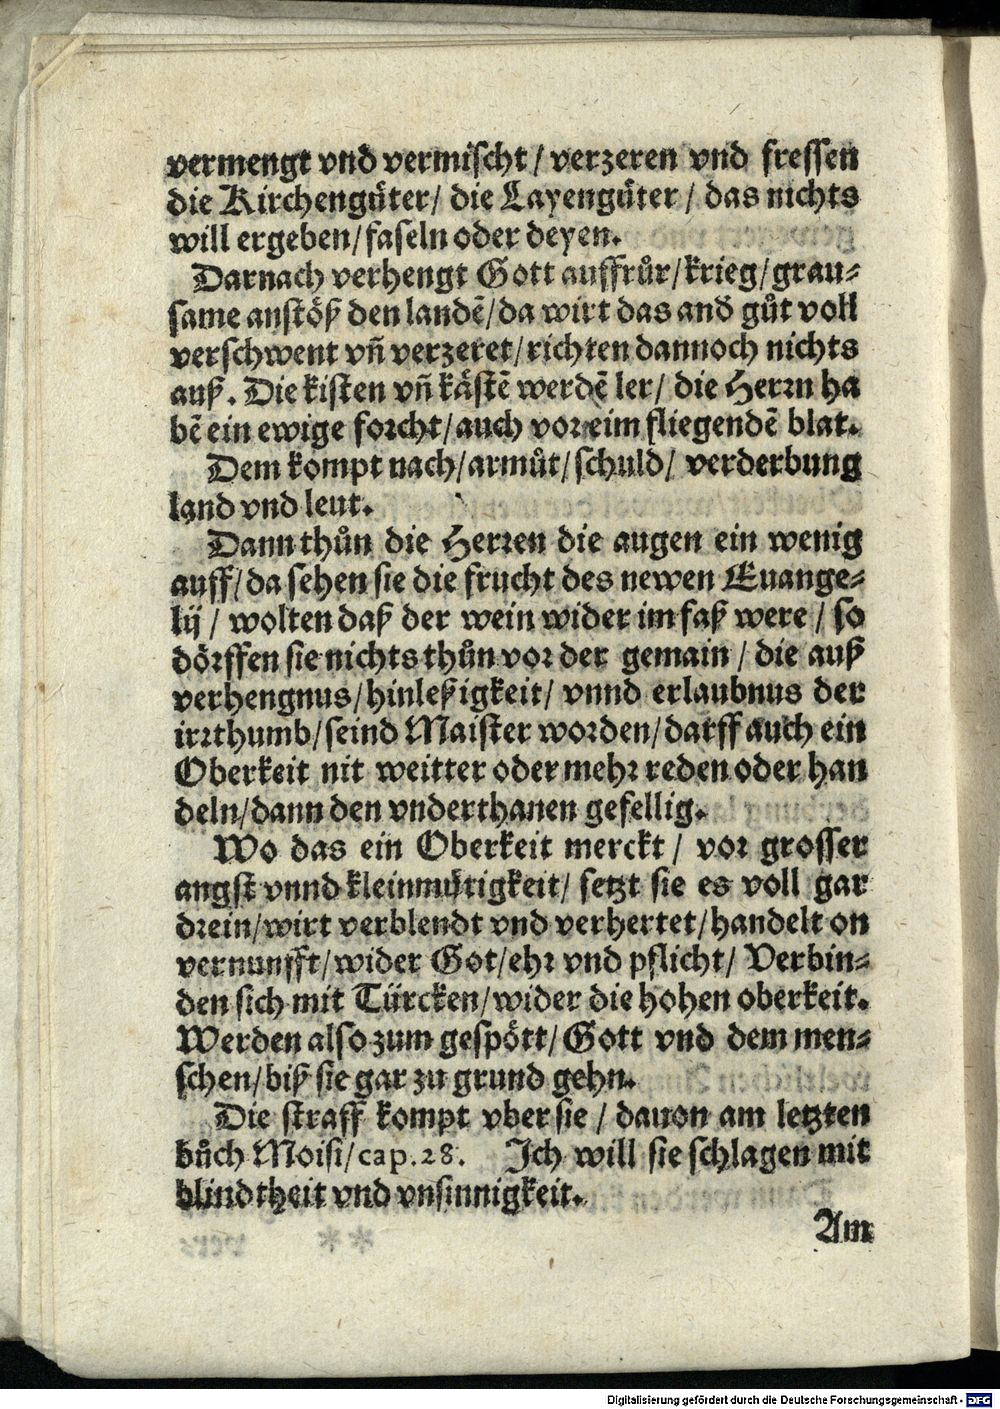 vermengt vnd vermischt / verzeren vnd fressen
die Kirchengůter/ die Layengůter / das nichts
will ergeben/faseln oder deyen.
Darnach verhengt Gott auffrůr/krieg/grau-
same anstöß den landē/da wirt das and gůt voll
verschwent vn̄ verzeret/richten dannoch nichts
auß. Die kisten vn̄ kästē werdē ler/ die Herrn ha
bē ein ewige forcht/auch vor eim fliegendē blat.
Dem kompt nach/armůt/schuld/ verderbung
land vnd leut.
Dann thůn die Herren die augen ein wenig
auff/da sehen sie die frucht des newen Euange-
lij / wolten daß der wein wider im faß were / so
dörffen sie nichts thůn vor der gemain / die auß
verhengnus/hinleßigkeit/ vnnd erlaubnus der
irrthumb/seind Maister worden/darff auch ein
Oberkeit nit weitter oder mehr reden oder han
deln/dann den vnderthanen gefellig.
Wo das ein Oberkeit merckt / vor grosser
angst vnnd kleinmütigkeit/ setzt sie es voll gar
drein/wirt verblendt vnd verhertet/handelt on
vernunfft/wider Got/ehr vnd pflicht/ Verbin-
den sich mit Türcken/wider die hohen oberkeit.
Werden also zum gespött/ Gott vnd dem men-
schen/biß sie gar zu grund gehn.
Die straff kompt vber sie / dauon am letzten
bůch Moisi/cap.28. Ich will sie schlagen mit
blindtheit vnd vnsinnigkeit.
Am
Digitalisierung gefördert durch die Deutsche Forschungsgemeinschaft - DFG